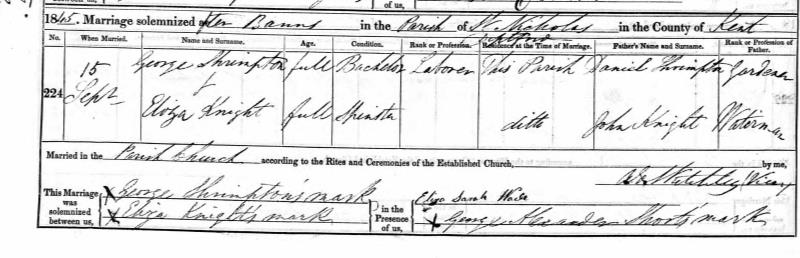 1845. Marriage solemnized after Banns in the Parish of St. Nicholas in the County of Kent
No. When Married. Name and Surname. Age. Condition. Rank or Profession. Residence at the Time of Marriage. Father's Name and Surname. Rank or Profession of Father.
224 15 Sept George Shrimpton full Bachelor Laborer This Parish Daniel Shrimpton Gardener
&
Eliza Knight full Spinster ditto John Knight Waterman
Married in the Parish Church according to the Rites and Ceremonies of the Established Church, by me,
Vicar
This Marriage was solemnized between us, X George Shrimpton's mark X Eliza Knight's mark in the Presence of us, Eliza Sarah Wade X George Alexander Short's mark